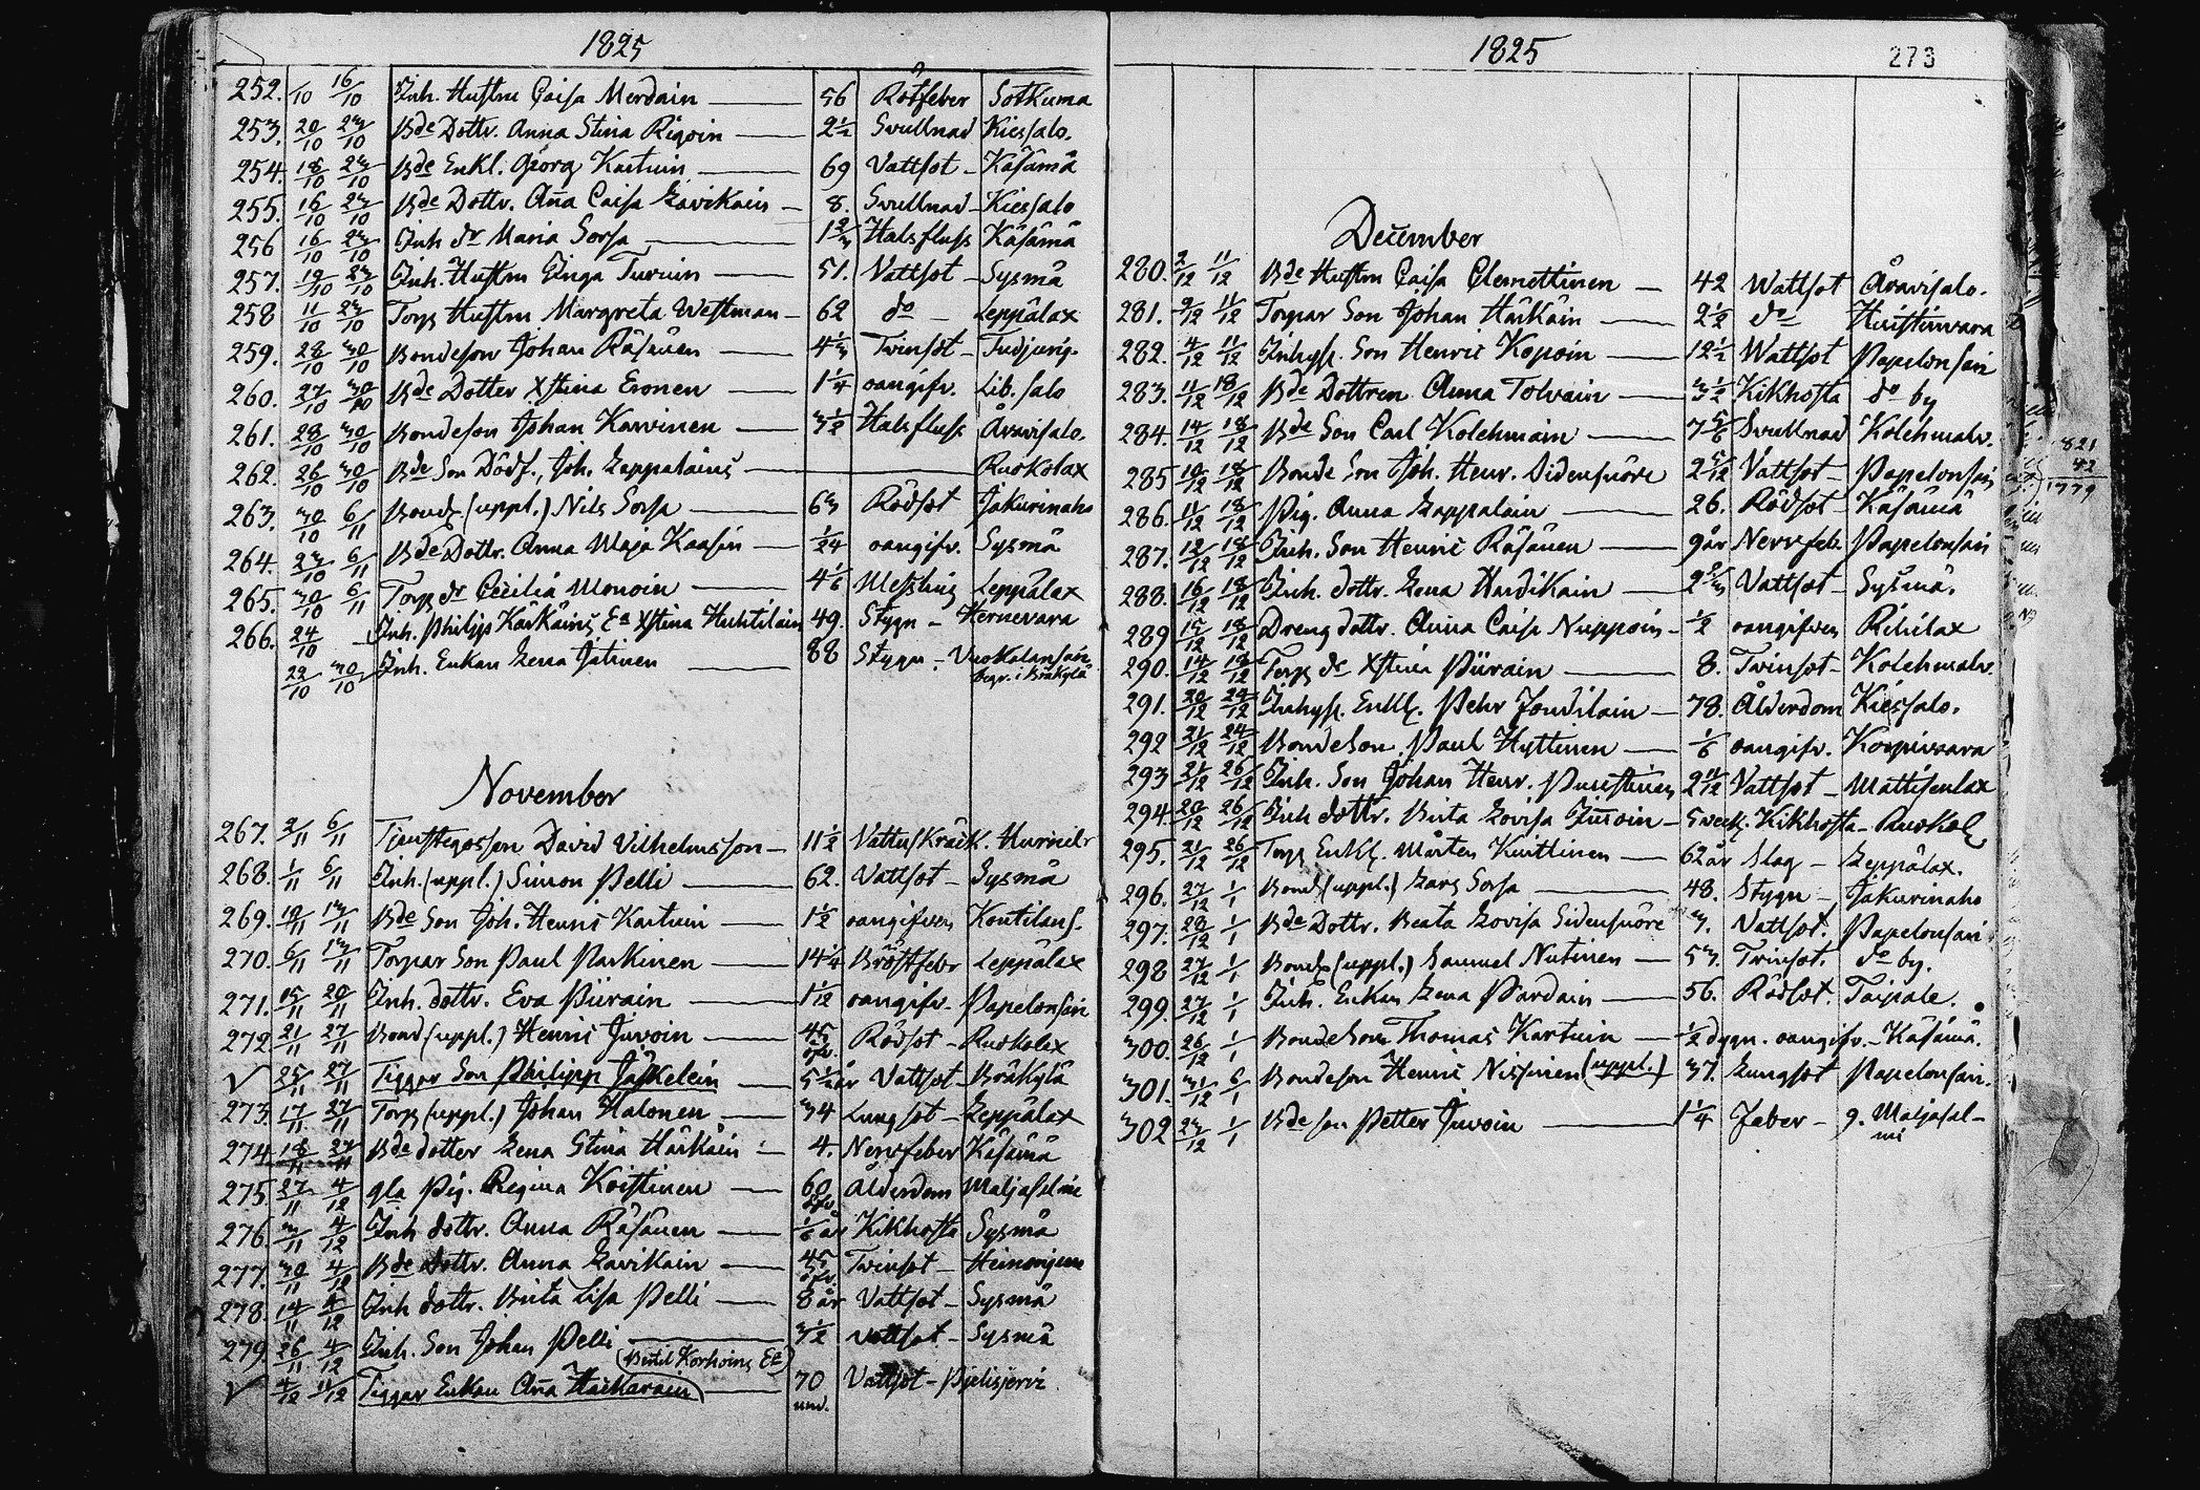 1825
252. /10 16/10 Inh. Hustru Caisa Merdain — 56 Rötfeber Sotkuma
253. 20/10 23/10 Bde Dottr. Anna Stina Rigoin — 2½ Svullnad Kiessalo.
254. 18/10 23/10 Bde Enkl. Georg Kartuin — 69 Vattsot - Käsämä
255. 16/10 23/10 Bde Dottr. Aña Caisa Lavikain — 8. Svullnad - Kiessalo
256 16/10 23/10 Inh dr Maria Sorsa — 1⅔ Halsfluss Käsämä
257. 19/10 23/10 Inh. Hustru Inga Turuin — 51. Vattsot - Sysmä
258 11/10 23/10 Torp Hustru Margreta Westman — 62 do - Leppälax
259. 28/10 30/10 Bondeson Johan Räsänen — 4⅓ Tvinsot -
260. 27/10 30/10 Bde Dotter Xstina Eronen — 1¼ oangifv. Lib. salo
261. 28/10 30/10 Bondeson Johan Karvinen — 3½ Halsfluss Åravisalo.
262. 26/10 30/10 Bde Son Dödf., Joh. Lappalains — Ruokolax
263. 30/10 6/11 Bond (uppl.) Nils Sorsa — 63 Rödsot Jakurinaho
264. 23/10 6/11 Bde Dottr. Anna Maja Kaasin — 1/24 oangifv. Sysmä
265. 30/10 6/11 Torp dr Cecilia Monoin — 4⅙ Messling Leppälax
266. 24/10 - Inh. Philips Kärkäins Ea Xstina Huhtilain 49. Stygn - Hernevara
22/10 30/10 Inh. Enkan Lena Jatinen — 88 Stygn - Vuokolansari
begr. i Bräkylä
November
267. 2/11 6/11 Tjenstegosson David Vilhelmsson — 11½ Vattuskräck.
268. 1/11 6/11 Inh. (uppl.) Simon Pelli — 62. Vattsot - Sysmä
269. 10/11 13/11 Bde Son Joh. Henric Kartuin — 1½ oangifven Kontilans.
270. 6/11 13/11 Torpar Son Paul Parkinen — 14¼ Bröstfebr Leppälax
271. 15/11 20/11 Inh. dottr. Eva Piirain — 1 1/12 oangifv. - Papelonsari
272 21/11 27/11 Bond (uppl.) Henric Juvoin — 45 öfv. Rödsot - Ruokolax
√ 25/11 27/11 Tiggar Son Philipp Jäskelein — 5½ år Vattsot - Bräkylä
273. 17/11 27/11 Torp (uppl.) Johan Halonen — 34 Lungsot - Leppälax
274. 18/11 27/11 Bde dotter Lena Stina Härkäin — 4. Nervfeber Käsämä
275 27/11 4/12 gla Pig. Regina Koistinen — 60 öfv. Ålderdom Maljasalmi
276. 3/11 4/12 Inh dottr. Anna Räsänen — ⅙ år Kikhosta Sysmä
277. 30/11 4/12 Bde Dottr. Anna Lavikain — 45 öfv. Tvinsot -
278. 14/11 4/12 Inh dottr. Brita Lisa Pelli — 8 år Vattsot - Sysmä
279. 26/11 4/12 Inh. Son Johan Pelli — 3½ Vattsot. - Sysmä
(Bertil Korhoins Ea)
√ 4/12 11/12 Tiggar Enkan Aña Härkärain — 70 Vattsot - Pielisjervi
1825 273
December
280. 2/12 11/12 Bde Hustru Caisa Clemettinen — 42 Wattsot Åravisalo.
281. 9/12 11/12 Torpar Son Johan Härkäin — 2½ do Huistinvara
282. 4/12 11/12 Inhys. Son Henric Kopoin — 12½ Wattsot Papelonsari
283. 11/12 18/12 Bde Dottren Anna Tolvain — 3½ Kikhosta do by
284. 14/12 18/12 Bde Son Carl Kolehmain — 7⅚ Svullnad Kolehmalv.
285 10/12 18/12 Bonde Son Joh. Henr. Sidensnöre 2 5/12 Vattsot - Papelonsari
286. 11/12 18/12 Pig. Anna Lappalain — 26. Rödsot - Käsämä
287. 12/12 18/12 Inh. Son Henric Räsänen — 9 år Nervfeb. Papelonsari
288. 16/12 18/12 Inh. dottr. Lena Hardikain — 2⅔ Vattsot - Sysmä.
289 15/12 18/12 Dreng dottr. Anna Caisa Nuppoin — ½ oangifven Rihilax
290. 14/12 18/12 Torp dr Xstina Piirain — 8. Tvinsot - Kolehmalv.
291. 20/12 24/12 Inhys. Enkl. Pehr Joudilain — 78. Ålderdom Kiessalo.
292 21/12 24/12 Bondeson Paul Hyttinen — ⅙ oangifv. Korpivaara
293 21/12 26/12 Inh. Son Johan Henr. Puustinen 2 11/12 Vattsot - Mattisenlax
294. 20/12 26/12 Inh dottr. Brita Lovisa Jumoin — 5 veck. Kikhosta - Ruokol
295. 21/12 26/12 Torp Enkl. Mårten Kuittinen — 62 år Slag - Leppälax.
296. 27/12 1/1 Bond (uppl.) Lars Sorsa — 48. Stygn - Jakurinaho
297. 28/12 1/1 Bde Dottr. Beata Lovisa Sidensnöre 3. Vattsot. Papelonsari
298 27/12 1/1 Bond (uppl.) Samuel Nutinen — 53. Tvinsot. do by.
299. 27/12 1/1 Inh. Enkan Lena Pardain — 56. Rödsot. Taipale.
300. 26/12 1/1 Bonde Son Thomas Kartuin — ½ dygn. oangifv. - Käsämä.
301. 31/12 6/1 Bondeson Henric Nissinen (uppl.) 37. Lungsot Papelonsari.
302 23/12 1/1 Bde son Petter Juvoin — 1¼ Feber - g. Maljasal-
mi
821
42
1779